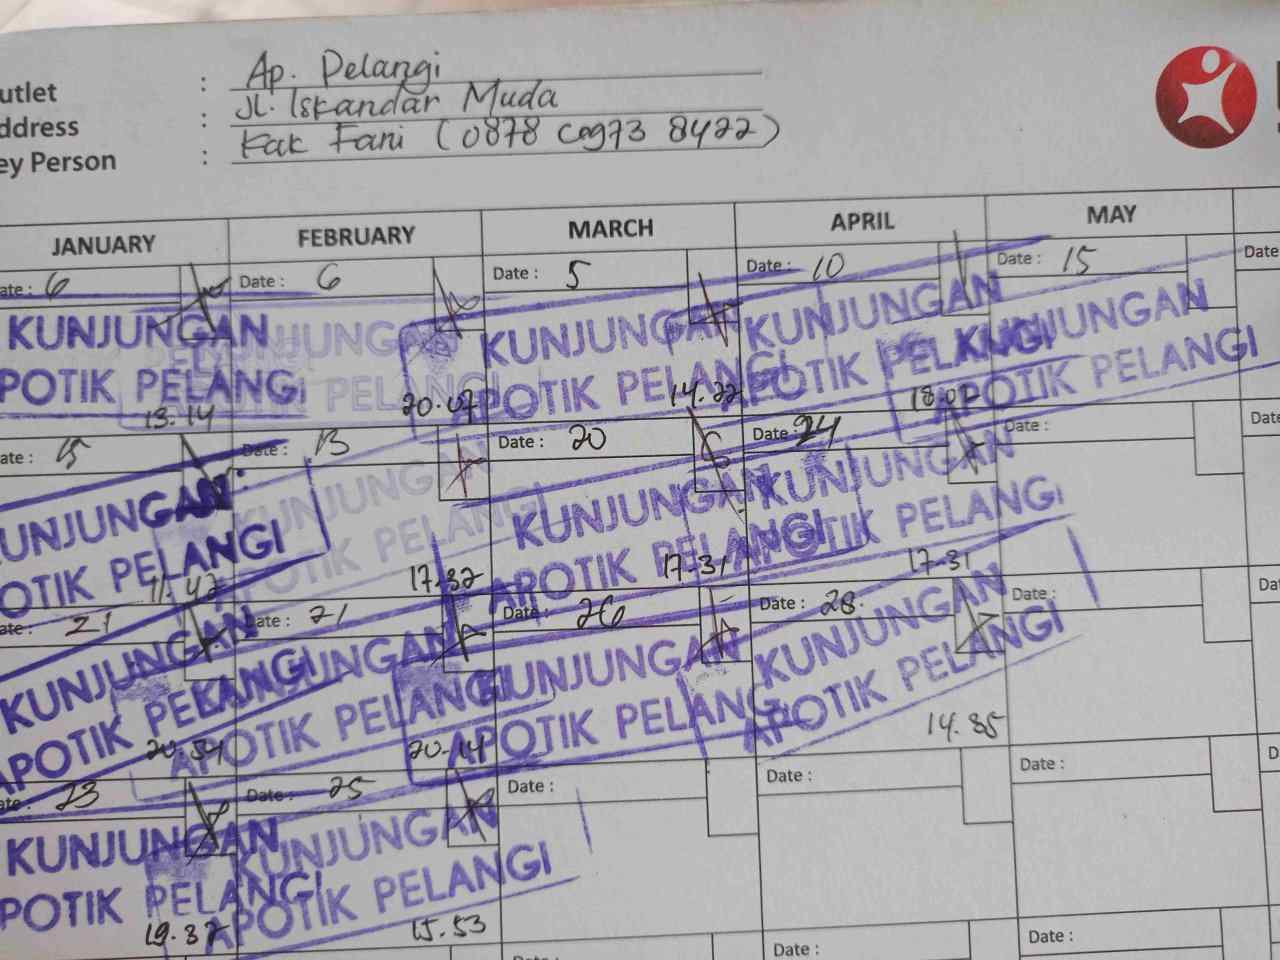 utlet : Ap. Pelangi
ddress : Jl. Iskandar Muda
ey Person : Kak Fani (0878 6973 8422)
JANUARY FEBRUARY MARCH APRIL MAY
ate : 6 Date : 6 Date : 5 Date : 10 Date : 15 Date
KUNJUNGAN KUNJUNGAN KUNJUNGAN KUNJUNGAN
POTIK PELANGI PELANGI APOTIK PELANGI APOTIK PELANGI APOTIK PELANGI
13.14 20.07 14.22 18.02
ate : 15 Date : 13 Date : 20 Date : 24 Date : Date
KUNJUNGAN KUNJUNGAN KUNJUNGAN KUNJUNGAN
OTIK PELANGI OTIK PELANGI APOTIK PELANGI APOTIK PELANGI
11.42 17.32 17.31 17.31
ate : 21 Date : 21 Date : 26 Date : 28 Date : Da
KUNJUNGAN KUNJUNGAN KUNJUNGAN KUNJUNGAN
APOTIK PELANGI APOTIK PELANGI APOTIK PELANGI APOTIK PELANGI
20.54 20.14 14.35
ate : 23 Date : 25 Date : Date : Date : D
KUNJUNGAN KUNJUNGAN
POTIK PELANGI APOTIK PELANGI
19.37 15.53
Date : Date :